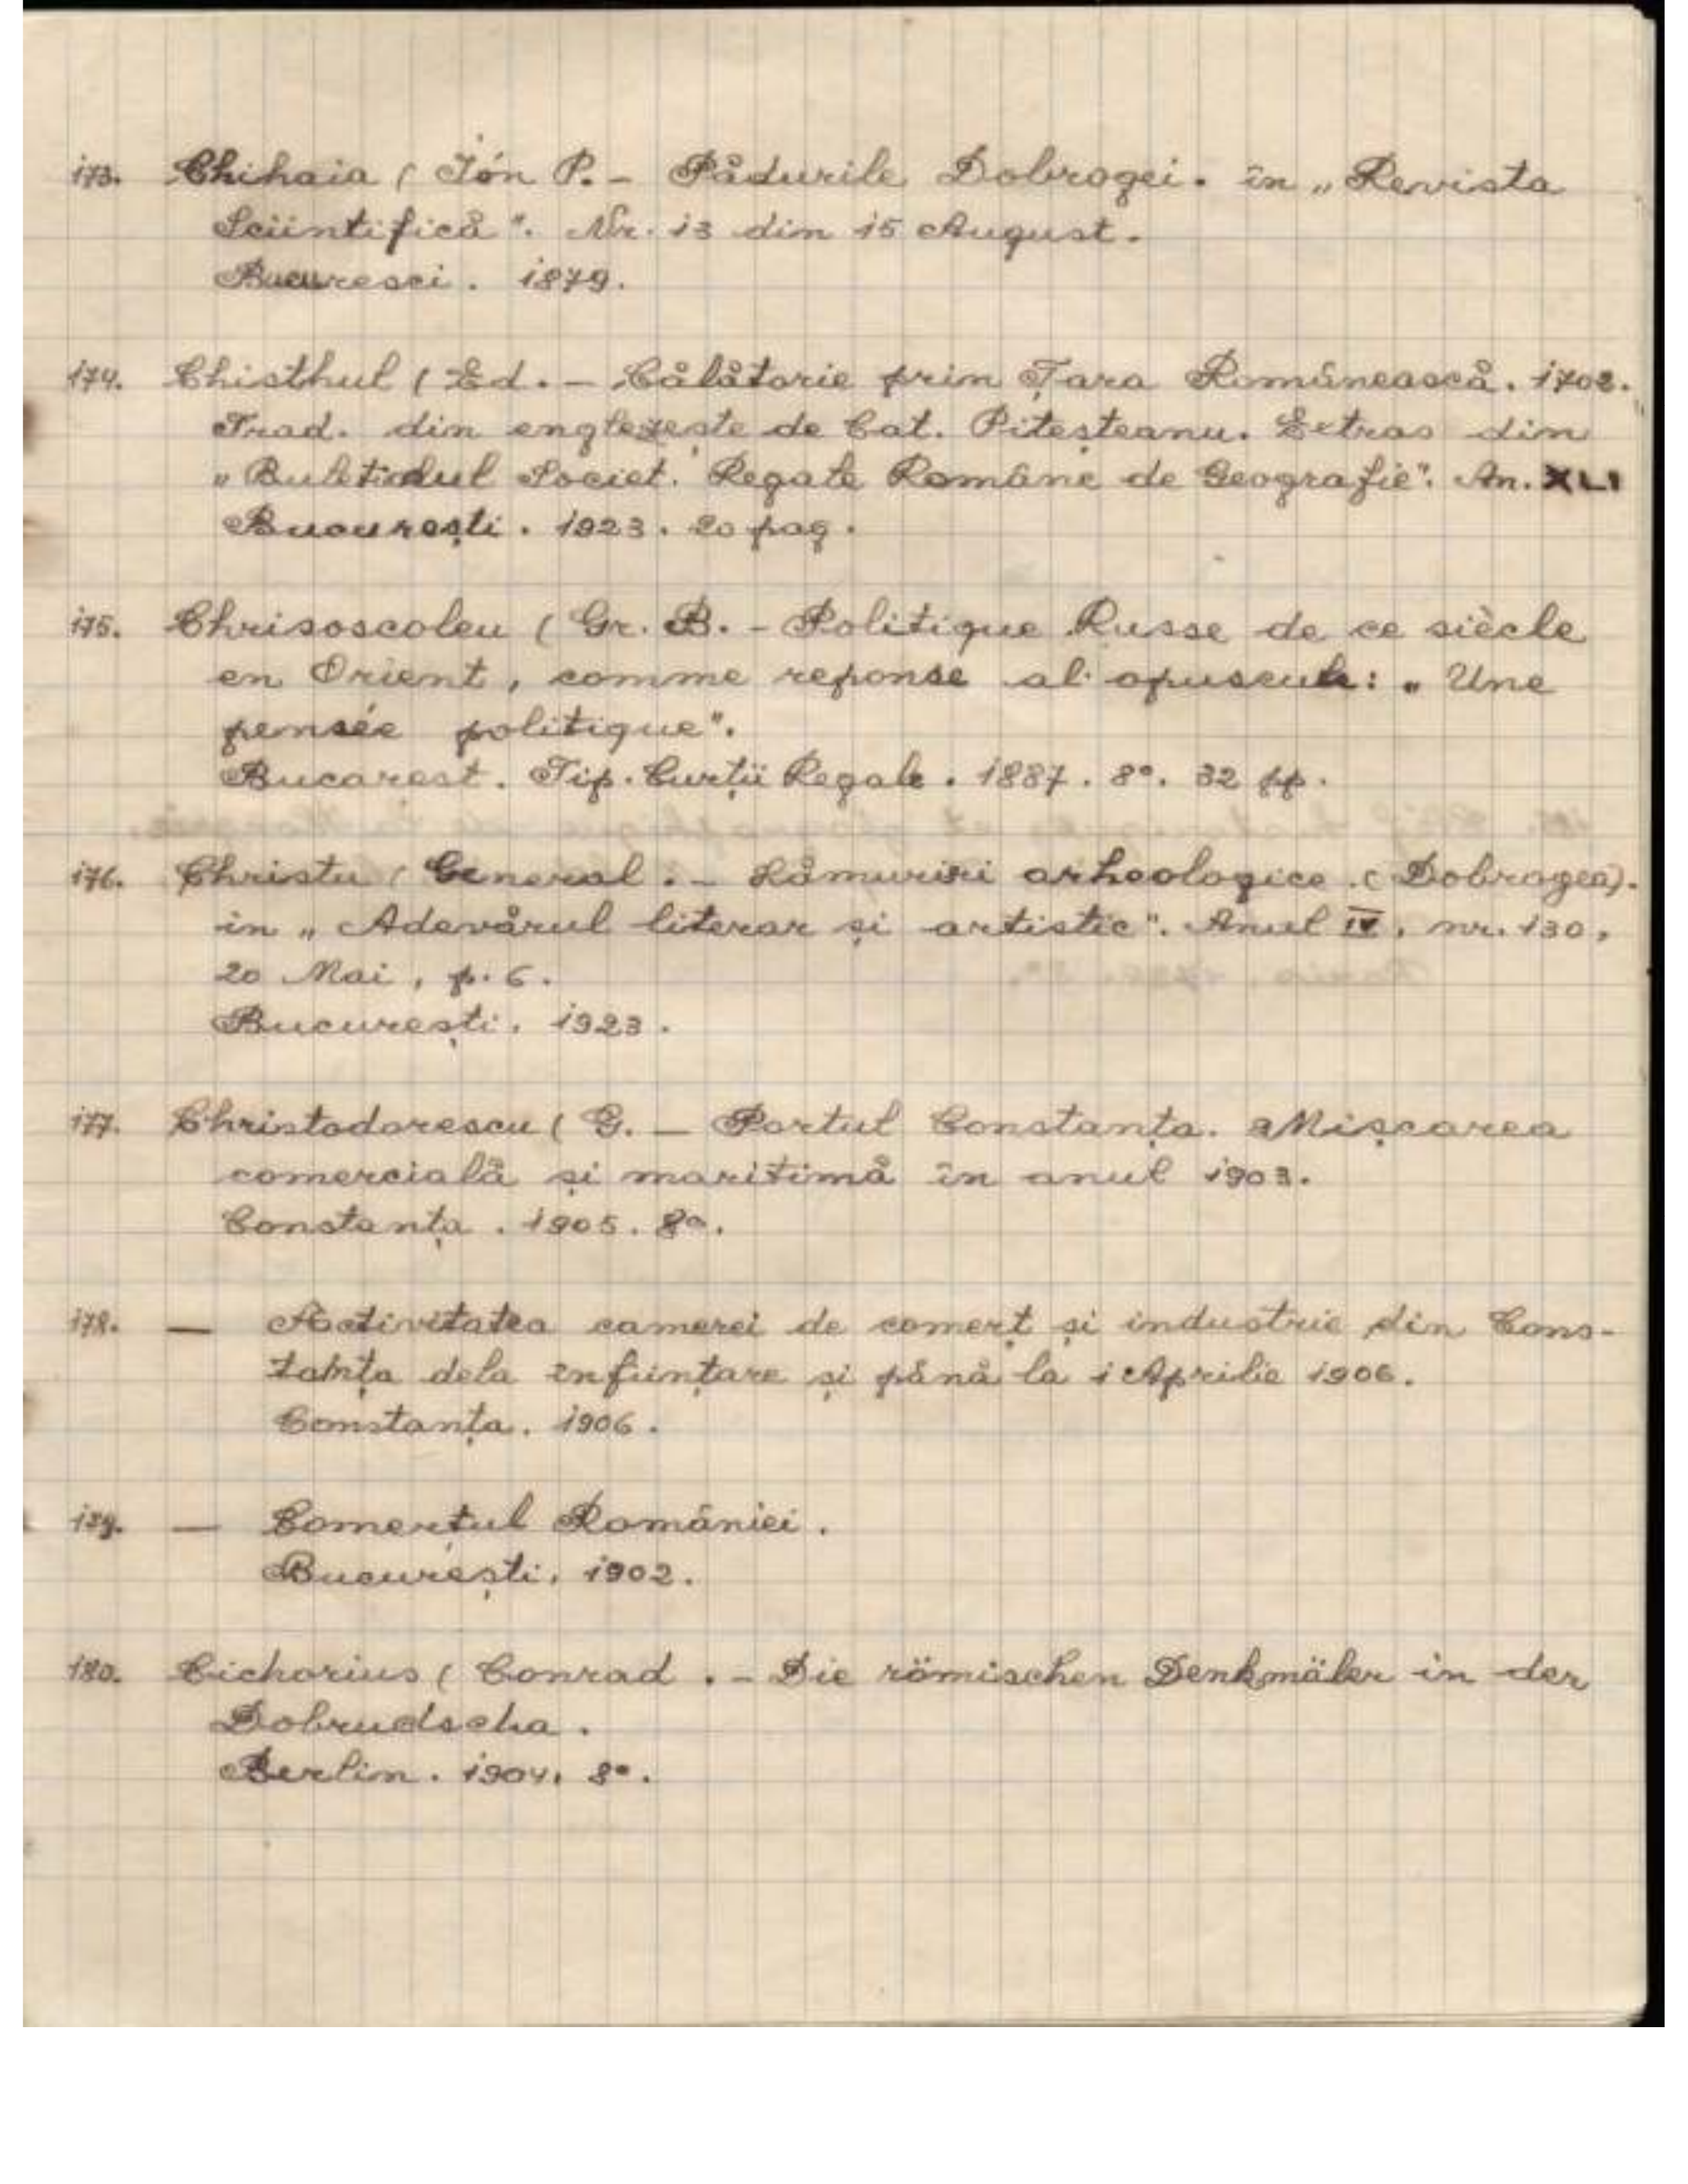 173. Chihaia ( Ión P. - Pădurile Dobrogei. în „Revista
Sciintifică". Nr. 13 din 15 August.
Bucuresci. 1879.
174. Chisthul ( Ed. - Călătorie prin Țara Românească. 1702.
Trad. din englezește de Cat. Piteșteanu. Extras din
„Buletinul Societ. Regale Române de Geografie". An. XLI
București. 1923. 20 pag.
175. Chrisoscoleu ( Gr. B. - Politique Russe de ce siècle
en Orient, comme reponse al opuscule: „Une
pensée politique".
Bucarest. Tip. Curții Regale. 1887. 8°. 32 pp.
176. Christu ( General. - Lămuriri arheologice. (Dobrogea).
in „Adevărul literar și artistic". Anul IV, nr. 130,
20 Mai, p. 6.
București. 1923.
177. Christodorescu ( G. - Portul Constanța. Mișcarea
comercială și maritimă în anul 1903.
Constanța. 1905. 8°.
178. — Activitatea camerei de comerț și industrie din Cons-
tanța dela înființare și până la 1 Aprilie 1906.
Constanța. 1906.
179. — Comerțul României.
București. 1902.
180. Cichorius ( Conrad. - Die römischen Denkmäler in der
Dobrudscha.
Berlin. 1904. 8°.